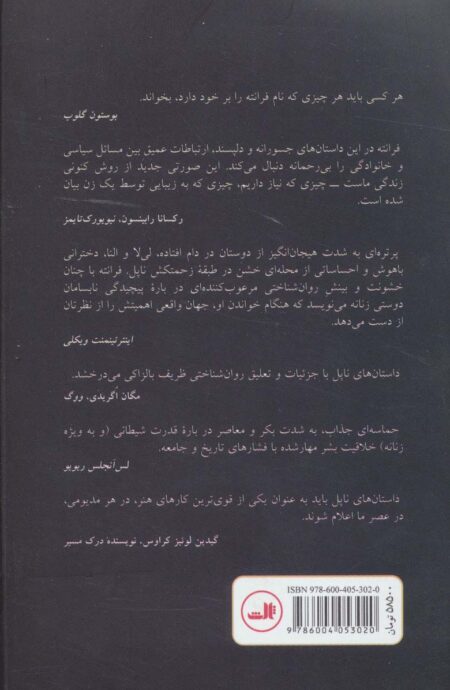 هر کسی باید هر چیزی که نام فرانته را بر خود دارد، بخواند.
بوستون گلوب
فرانته در این داستان‌های جسورانه و دلپسند، ارتباطات عمیق بین مسائل سیاسی
و خانوادگی را بی‌رحمانه دنبال می‌کند. این صورتی جدید از روش کنونی
زندگی ماست ــ چیزی که نیاز داریم، چیزی که به زیبایی توسط یک زن بیان
شده است.
رکسانا رابینسون، نیویورک‌تایمز
پرتره‌ای به شدت هیجان‌انگیز از دوستان در دام افتاده، لی‌لا و النا، دخترانی
باهوش و احساساتی از محله‌ای خشن در طبقهٔ زحمتکش ناپل. فرانته با چنان
خشونت و بینش روان‌شناختی مرعوب‌کننده‌ای در بارهٔ پیچیدگی نابسامان
دوستی زنانه می‌نویسد که هنگام خواندن او، جهان واقعی اهمیتش را از نظرتان
از دست می‌دهد.
اینترتینمنت ویکلی
داستان‌های ناپل با جزئیات و تعلیق روان‌شناختی ظریف بالزاکی می‌درخشد.
مگان اُگریدی، ووگ
حماسه‌ای جذاب، به شدت بکر و معاصر در بارهٔ قدرت شیطانی (و به ویژه
زنانه) خلاقیت بشر مهارشده با فشارهای تاریخ و جامعه.
لس‌آنجلس ریویو
داستان‌های ناپل باید به عنوان یکی از قوی‌ترین کارهای هنر، در هر مدیومی،
در عصر ما اعلام شوند.
گیدین لوئیز کراوس، نویسنده درک مسیر
ISBN 978-600-405-302-0
9 786004 053020
ثالث
۵۸۵۰۰ تومان